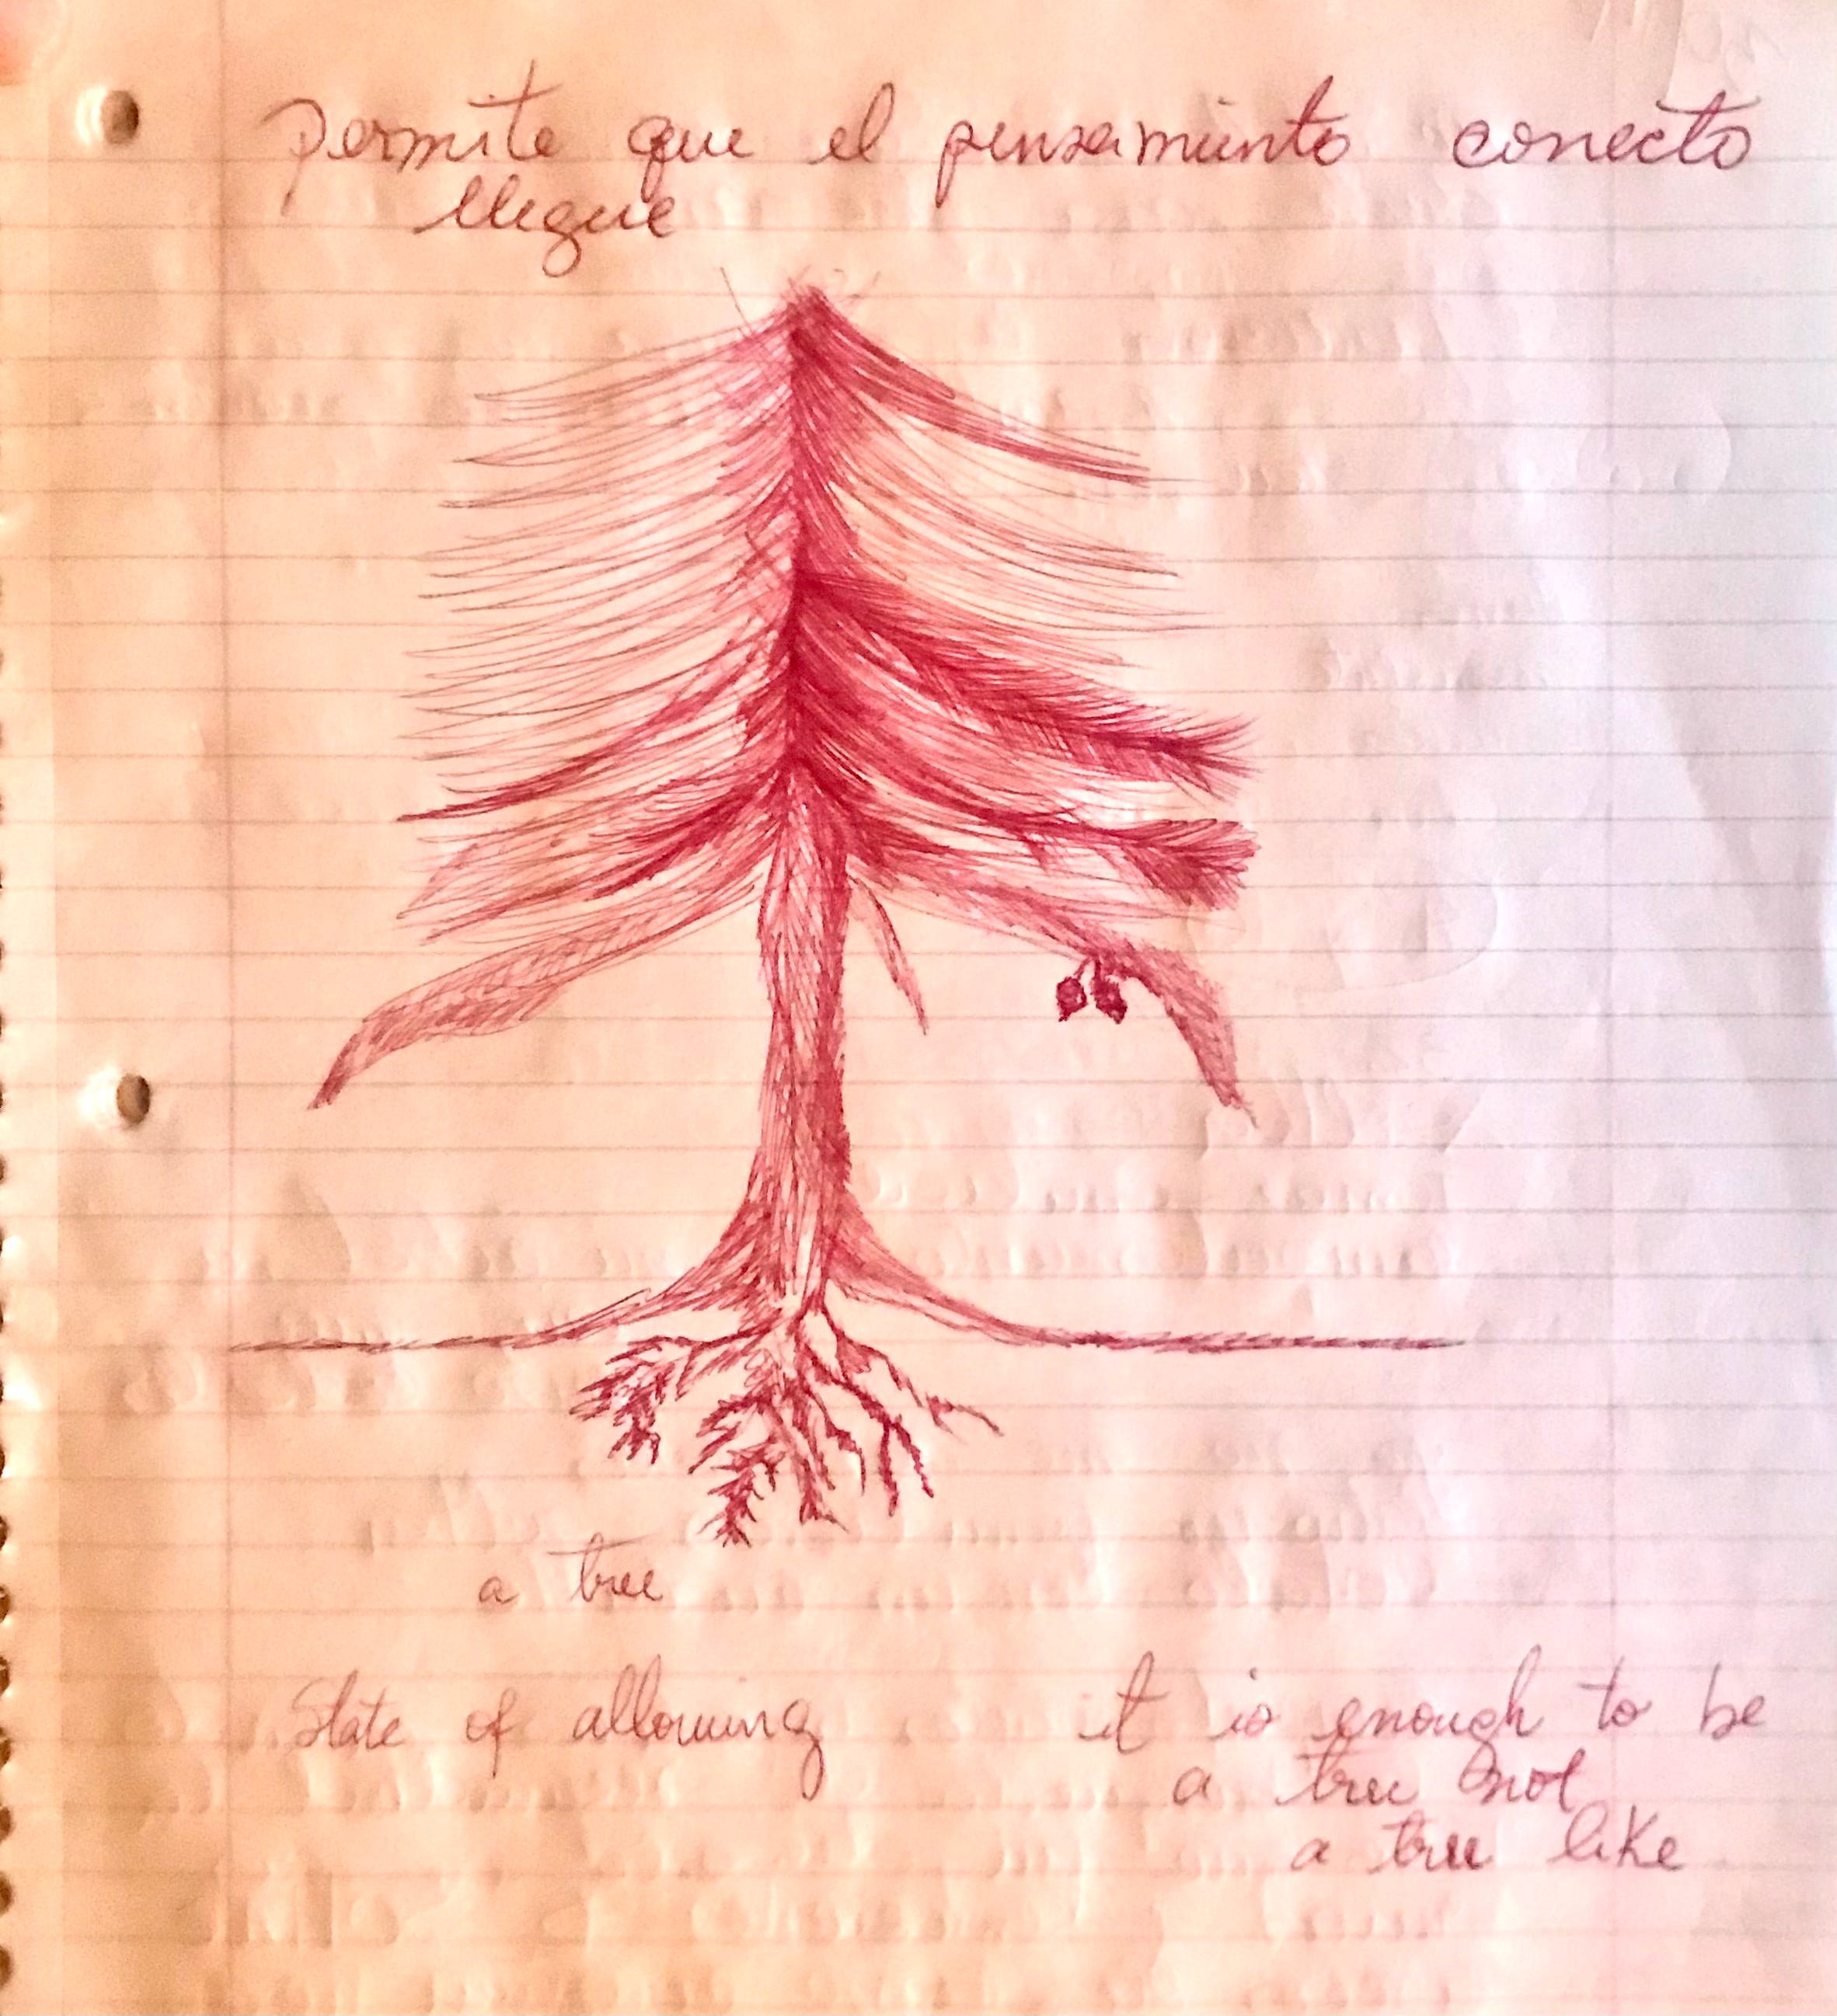 permite que el pensamiento conecto
llegue
a tree
State of allowing
it is enough to be
a tree not
a tree like